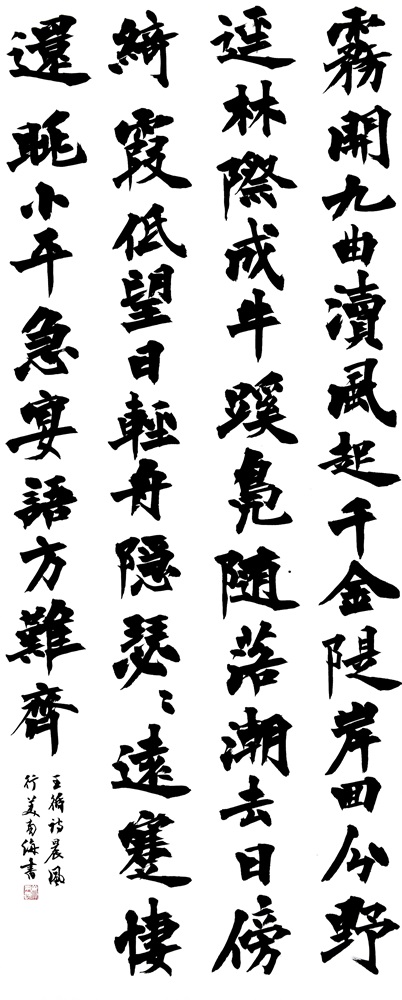 霧開九曲瀆風起千金隄岸回分野
逕林際成牛蹊鳧随落潮去日傍
綺霞低望日輕舟隠瑟々遠蹇悽
還眺小平急宴語方難齊
王循詩晨風
行姜南海書